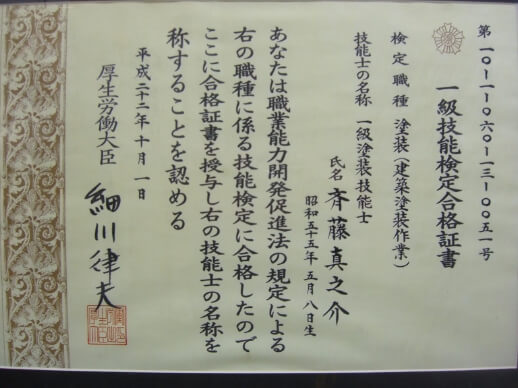 第一〇-一-一〇六〇-一三-〇〇五一号
一級技能検定合格証書
検定職種 塗装(建築塗装作業)
技能士の名称 一級塗装技能士
氏名 斉藤真之介
昭和五十五年五月八日生
あなたは職業能力開発促進法の規定による
右の職種に係る技能検定に合格したので
ここに合格証書を授与し右の技能士の名称を
称することを認める
平成二十二年十月一日
厚生労働大臣 細川律夫